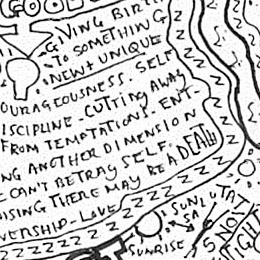 GIVING BIRTH
TO SOMETHING
NEW + UNIQUE
OURAGEOUSNESS. SELF
ISCIPLINE - CUTTING AWAY
FROM TEMATATIONS. ENT
NG ANOTHER DIMENSION
CAN'T BETRAY SELF.
ISING THERE MAY BE A DEAL
VERSHIP - LOVE
SUNLUTATI
SUNRISE